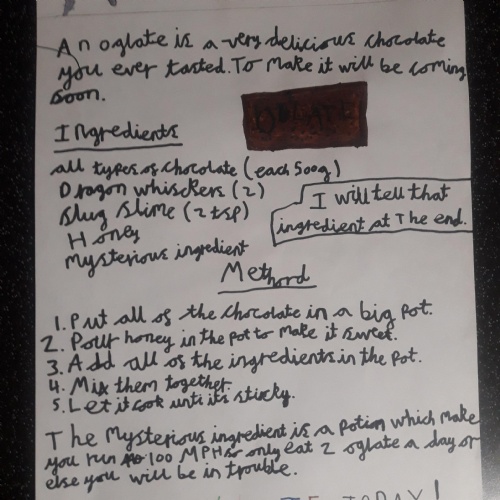 An oglate is a very delicious chocolate
you ever tasted. To make it will be coming
soon.
OGLATE
Ingredients
all types of chocolate (each 500g)
Dragon whisckers (2)
Slug Slime (2 tsp)
Honey
Mysterious ingredient
I will tell that
ingredient at The end.
Methord
1. Put all of the chocolate in a big pot.
2. Pour honey in the pot to make it sweet.
3. Add all of the ingredients in the pot.
4. Mix them together.
5. Let it cook until its sticky.
The Mysterious ingredient is a potion which make
you run 100 MPH or only eat 2 oglate a day or
else you will be in trouble.
TODAY!